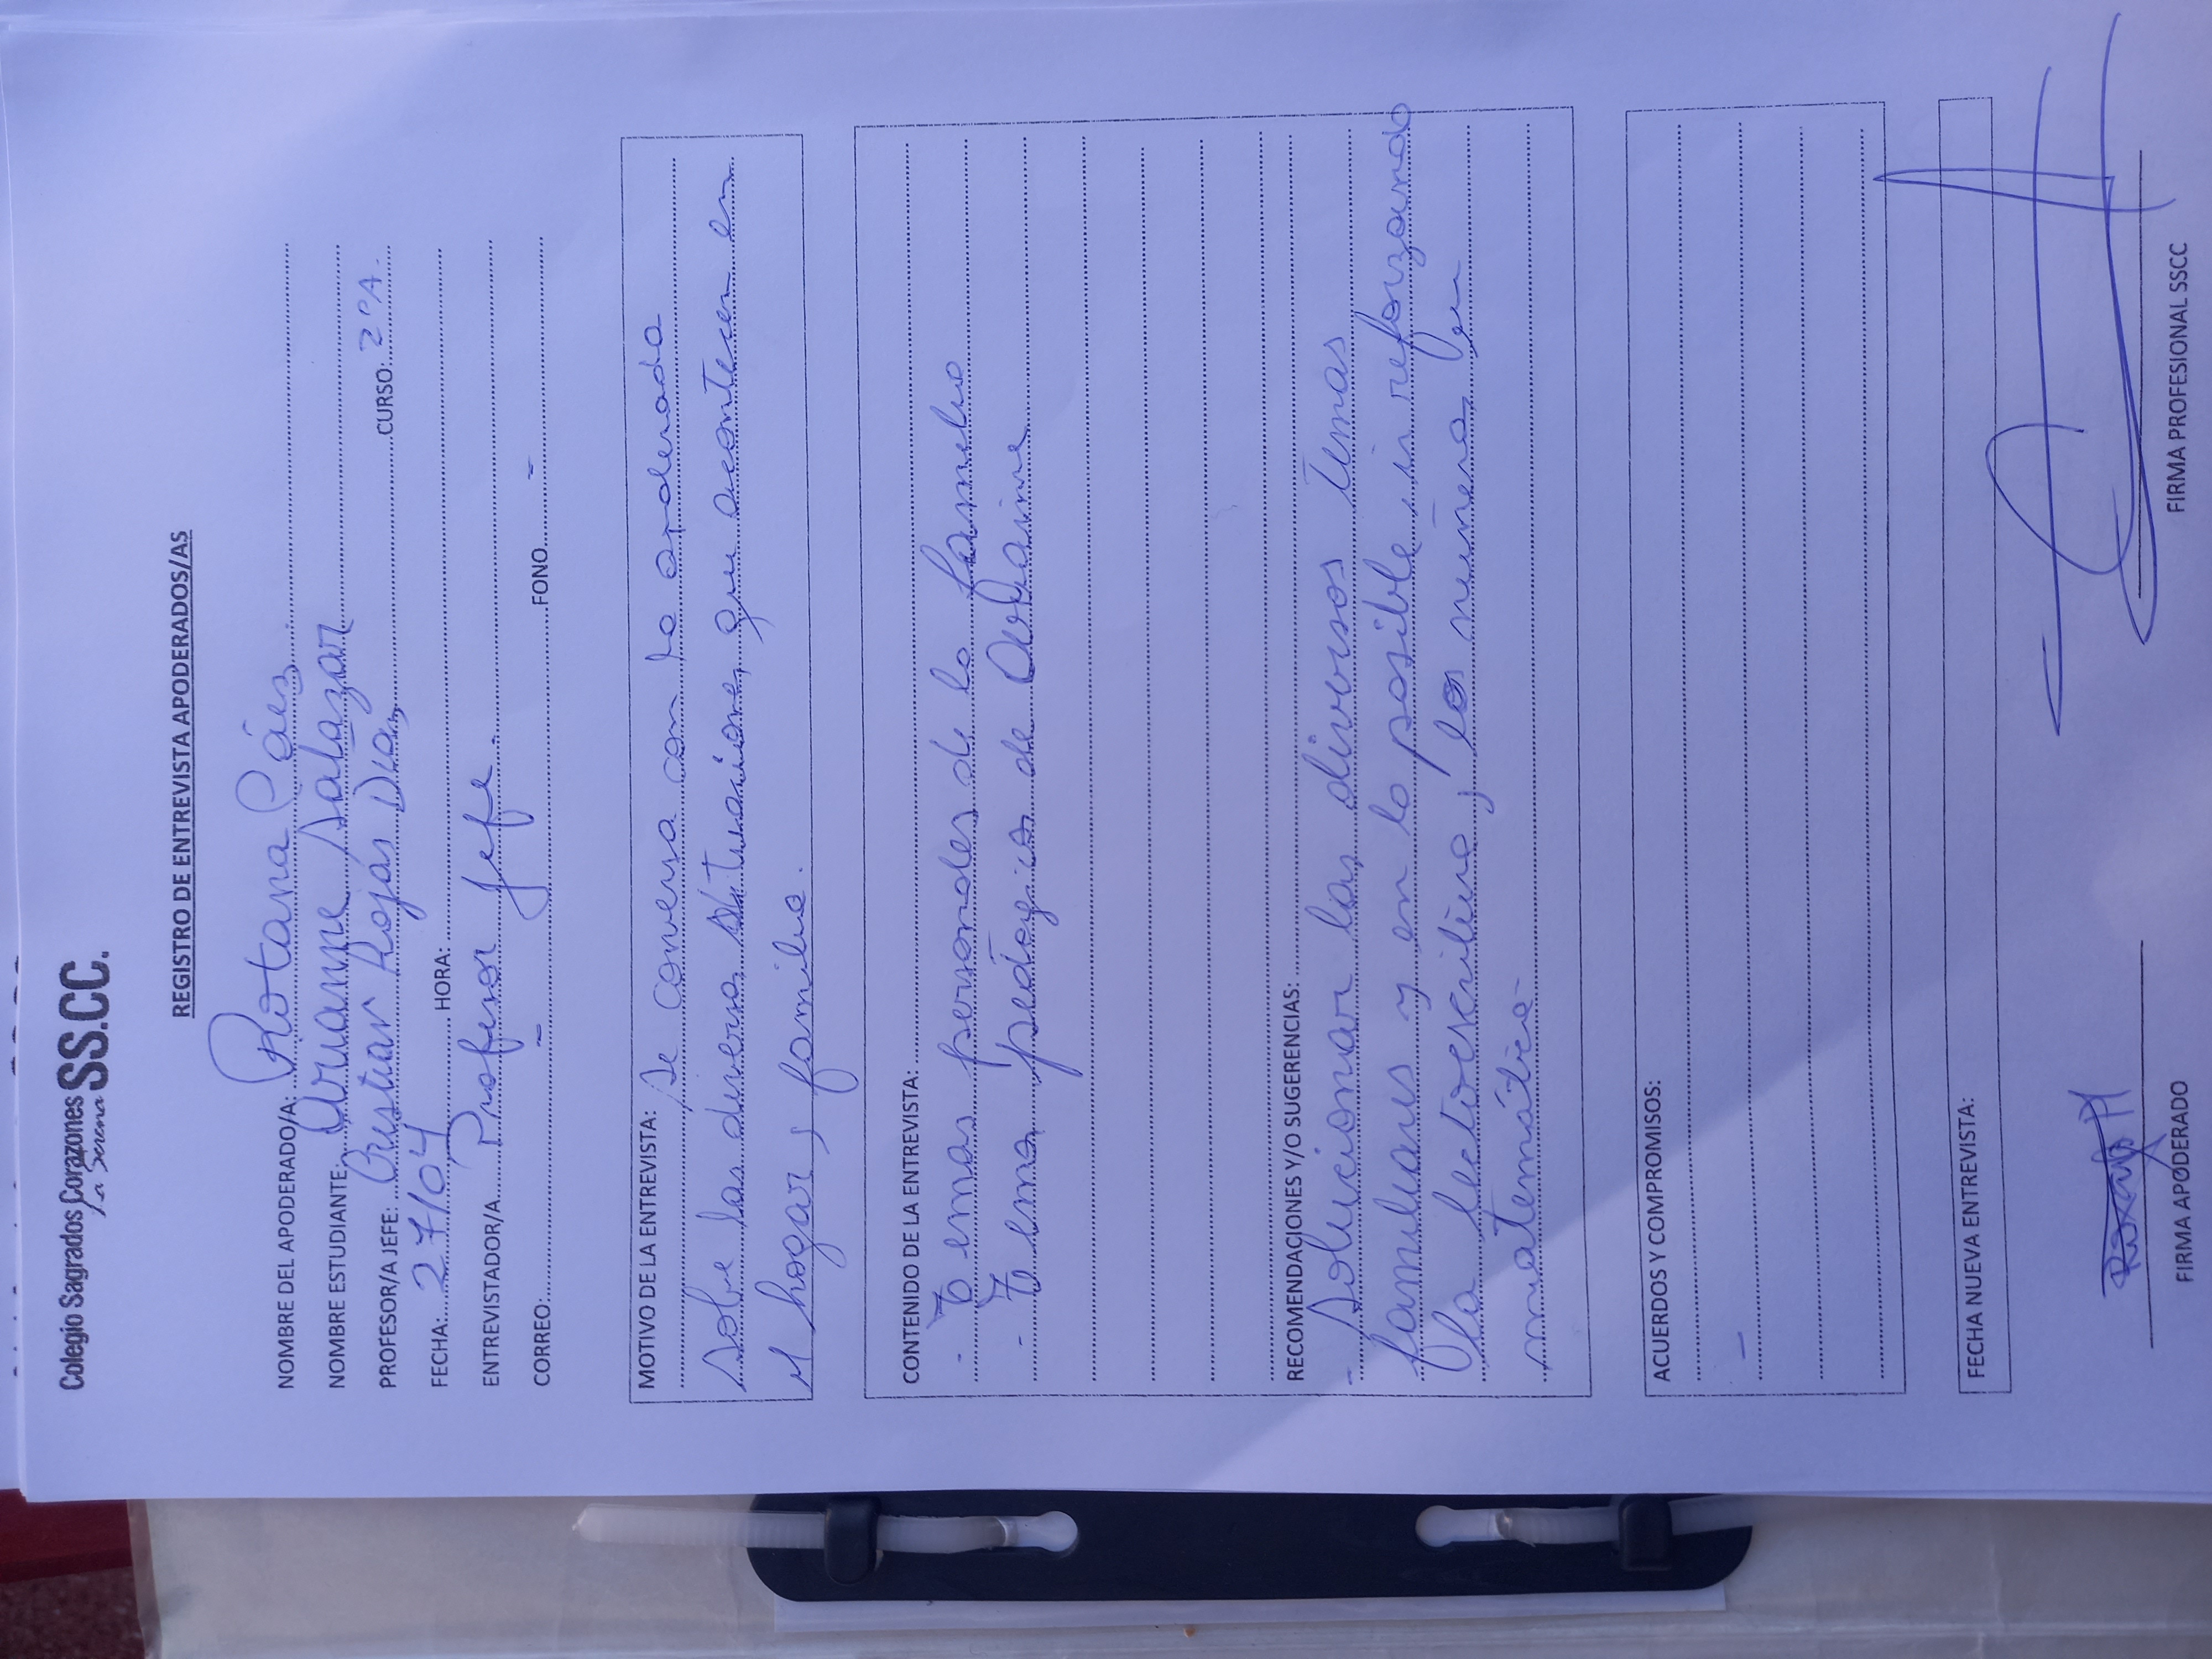 Colegio Sagrados Corazones SS.CC.
La Serena
REGISTRO DE ENTREVISTA APODERADOS/AS
NOMBRE DEL APODERADO/A: Páez
NOMBRE ESTUDIANTE: Arianne Salazar
PROFESOR/A JEFE: Cristian Rojas Díaz CURSO: 2°A.
FECHA: 27/04 HORA:
ENTREVISTADOR/A Profesor Jefe.
CORREO: - FONO -
MOTIVO DE LA ENTREVISTA: Se conversa con la apoderada
sobre las diversas situaciones que acontecen en
el hogar y familia.
CONTENIDO DE LA ENTREVISTA:
- Temas personales de la familia
- Temas pedagógicos de Arianne
RECOMENDACIONES Y/O SUGERENCIAS:
- Solucionar los diversos temas
familiares y en lo posible ir reforzando
la lectoescritura, los números en
matemática.
ACUERDOS Y COMPROMISOS:
-
FECHA NUEVA ENTREVISTA:
FIRMA APODERADO FIRMA PROFESIONAL SSCC